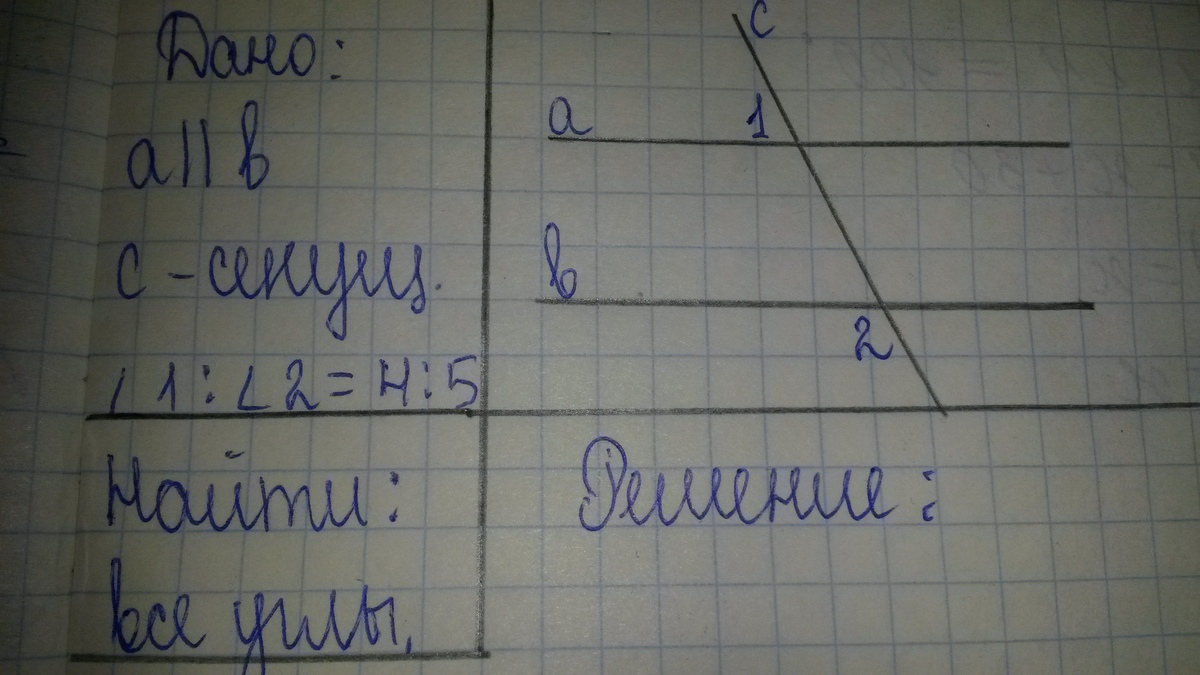 Дано:
a || в
c - секущ.
∠1 : ∠2 = 4 : 5
Найти:
все углы.
c
a
1
в
2
Решение: